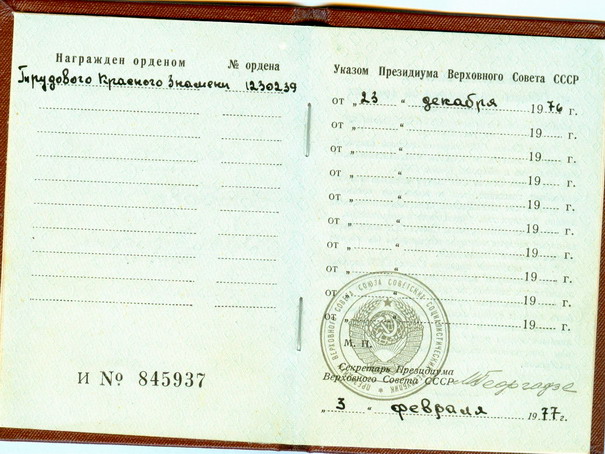 Награжден орденом
№ ордена
Трудового Красного Знамени 1230239
И № 845937
Указом Президиума Верховного Совета СССР
от „23“ декабря 1976 г.
от „ “ 19 г.
от „ “ 19 г.
от „ “ 19 г.
от „ “ 19 г.
от „ “ 19 г.
от „ “ 19 г.
от „ “ 19 г.
от „ “ 19 г.
от „ “ 19 г.
М. П.
Секретарь Президиума
Верховного Совета СССР МГеоргадзе
„3“ февраля 1977г.